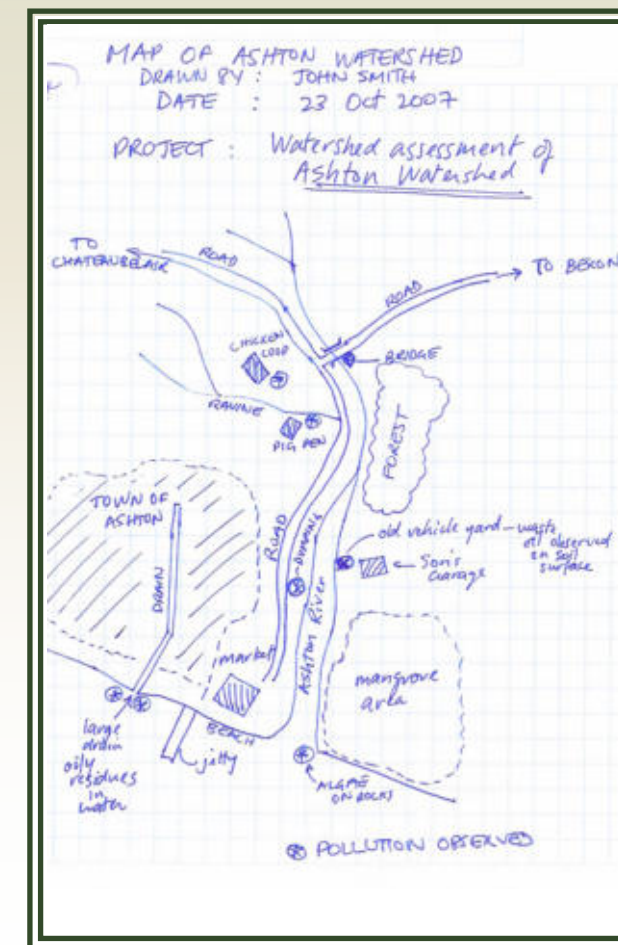 MAP OF ASHTON WATERSHED
DRAWN BY : JOHN SMITH
DATE : 23 Oct 2007
PROJECT : Watershed assessment of
Ashton Watershed
TO
CHATEAUBELAIR
ROAD
ROAD
TO BEKON
CHICKEN
COOP
BRIDGE
RAVINE
PIG PEN
FOREST
TOWN OF
ASHTON
DRAIN
ROAD
DUMPING
old vehicle yard - waste
oil observed
on soil
surface
Son's
Garage
Ashton River
market
mangrove
area
BEACH
jetty
large
drain
oily
residues
in
water
ALGAE
ON ROCKS
POLLUTION OBSERVED